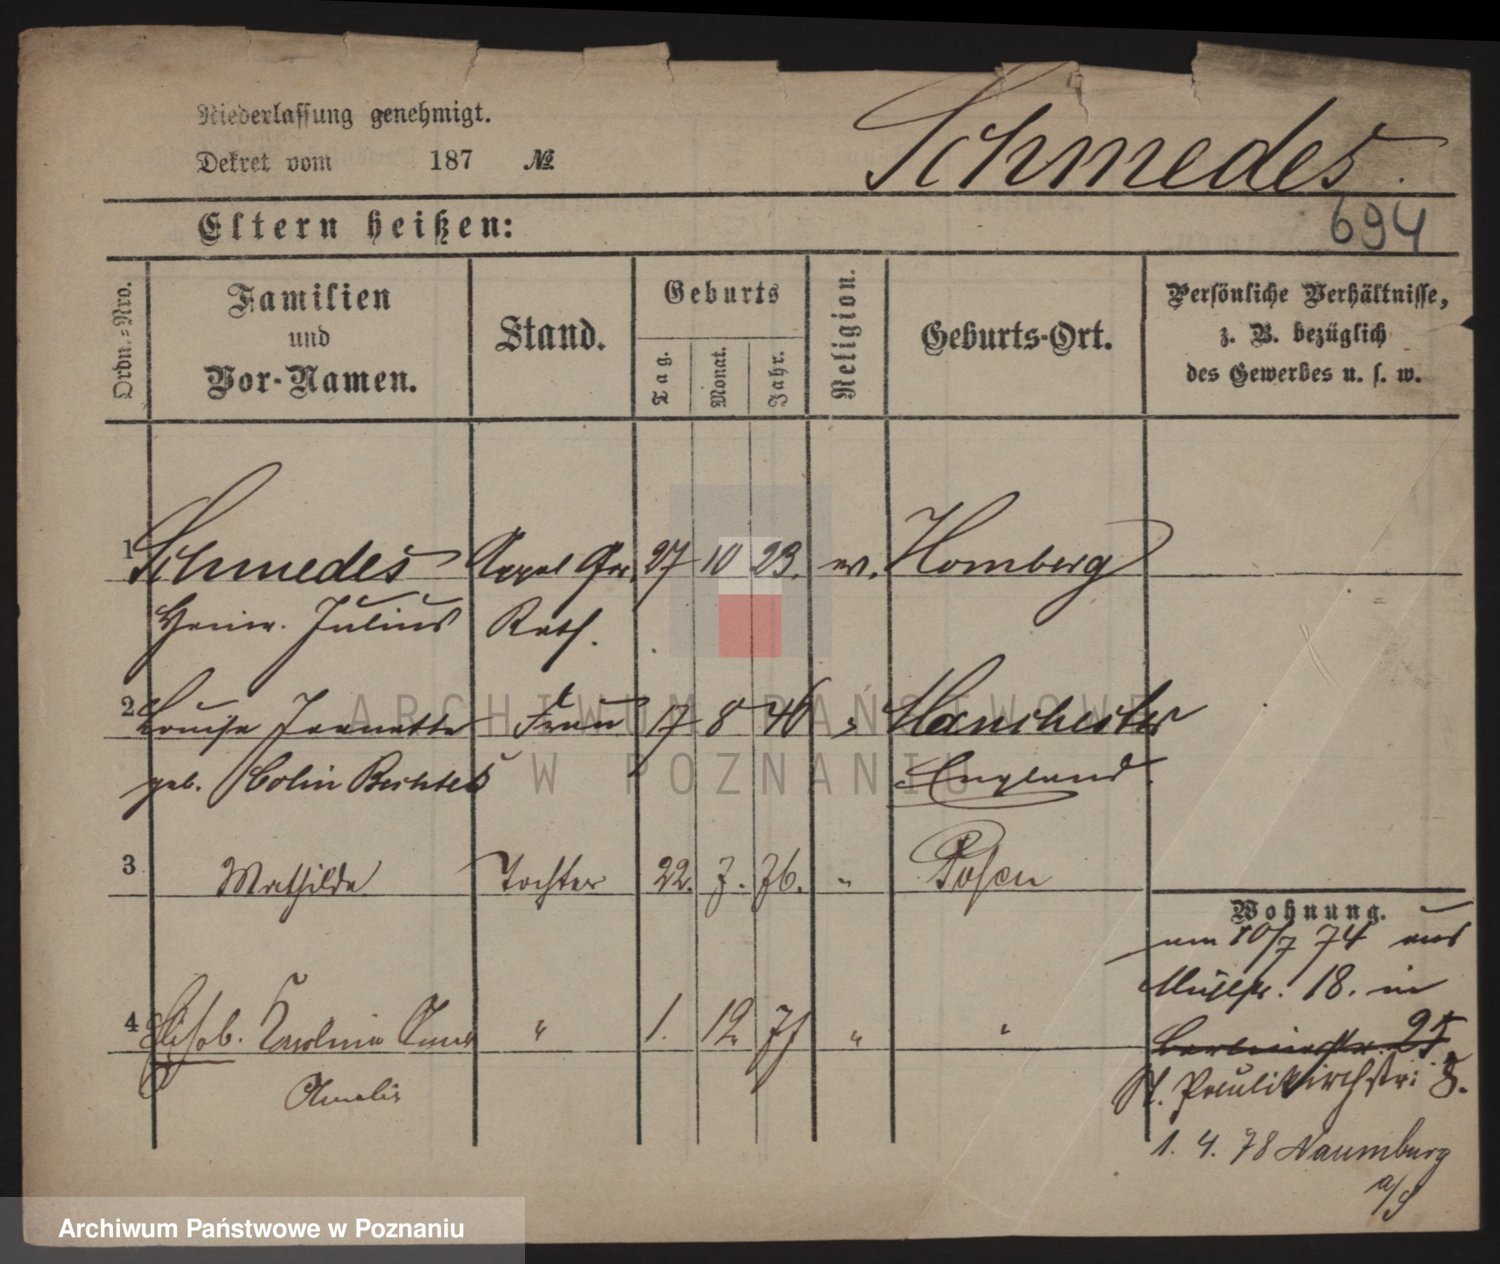 Niederlassung genehmigt.
Dekret vom 187 №
Schmedes.
694
Eltern heißen:
Ordn.-Nro.
Familien
und
Vor-Namen.
Stand.
Geburts
Tag.
Monat.
Jahr.
Religion.
Geburts-Ort.
Persönliche Verhältnisse,
z. B. bezüglich
des Gewerbes u. s. w.
1 Schmedes Appel Ger. 27 10 23. ev. Homberg
Heinr. Julius Rath.
2 Louise Jeanette Frau 17 8 46 " Manchester
geb. Colin England.
3 Mathilde Tochter 22. 7. 76. " Posen
Wohnung.
am 10/7 74 aus
Mühlstr. 18. in
Berlinerstr. 25
4 Elisab. Karoline Anna " 1. 12 77 " "
Amalie
St. Paulikirchstr: 8.
1. 4. 78 Naumburg
a/S
ARCHIWUM PAŃSTWOWE
W POZNANIU
Archiwum Państwowe w Poznaniu